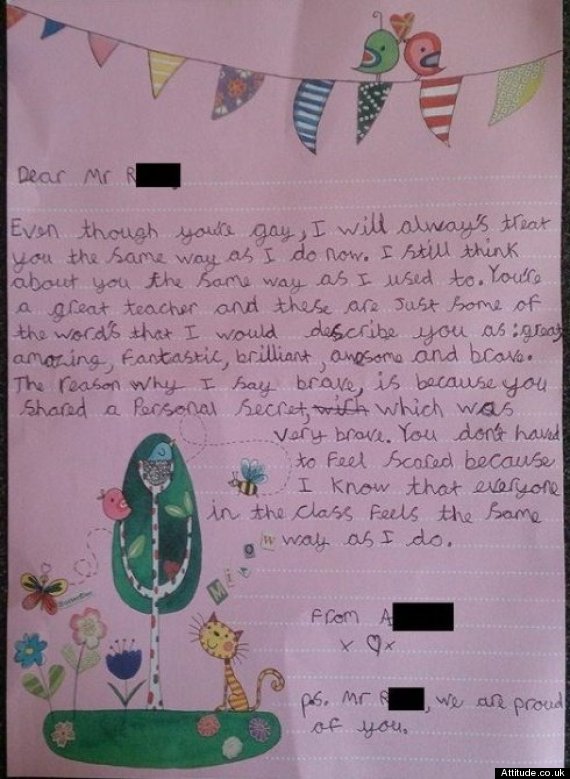 Dear Mr R
Even though you're gay, I will always treat
you the same way as I do now. I still think
about you the same way as I used to. You're
a great teacher and these are just some of
the word's that I would describe you as: great,
amazing, fantastic, brilliant, awesome and brave.
The reason why I say brave, is because you
shared a Personal secret, with which was
very brave. You don't haved
to feel scared because
I know that everyone
in the class feels the same
way as I do.
MEOW
Butterflies
From A
x ♡ x
p.s. Mr R, we are proud
of you.
Attitude.co.uk